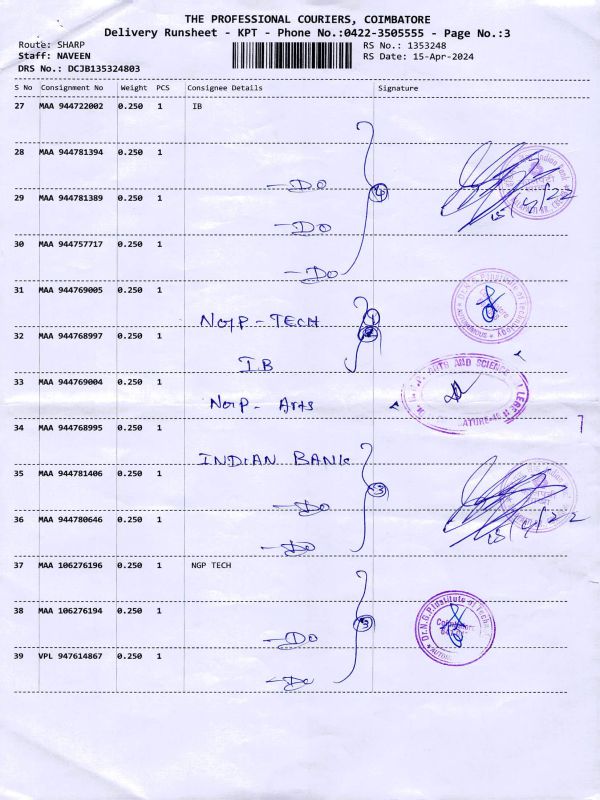 THE PROFESSIONAL COURIERS, COIMBATORE
Delivery Runsheet - KPT - Phone No.:0422-3505555 - Page No.:3
Route: SHARP
RS No.: 1353248
Staff: NAVEEN
RS Date: 15-Apr-2024
DRS No.: DCJB135324803
S No Consignment No Weight PCS Consignee Details Signature
27 MAA 944722002 0.250 1 IB
28 MAA 944781394 0.250 1
- Do
29 MAA 944781389 0.250 1
4
- Do
30 MAA 944757717 0.250 1
- Do
31 MAA 944769005 0.250 1
NGP - TECH
32 MAA 944768997 0.250 1
IB
33 MAA 944769004 0.250 1
NGP - Arts
34 MAA 944768995 0.250 1
INDIAN BANK
35 MAA 944781406 0.250 1
3
- Do
36 MAA 944780646 0.250 1
- Do
37 MAA 106276196 0.250 1 NGP TECH
38 MAA 106276194 0.250 1
3
- Do
39 VPL 947614867 0.250 1
- Do